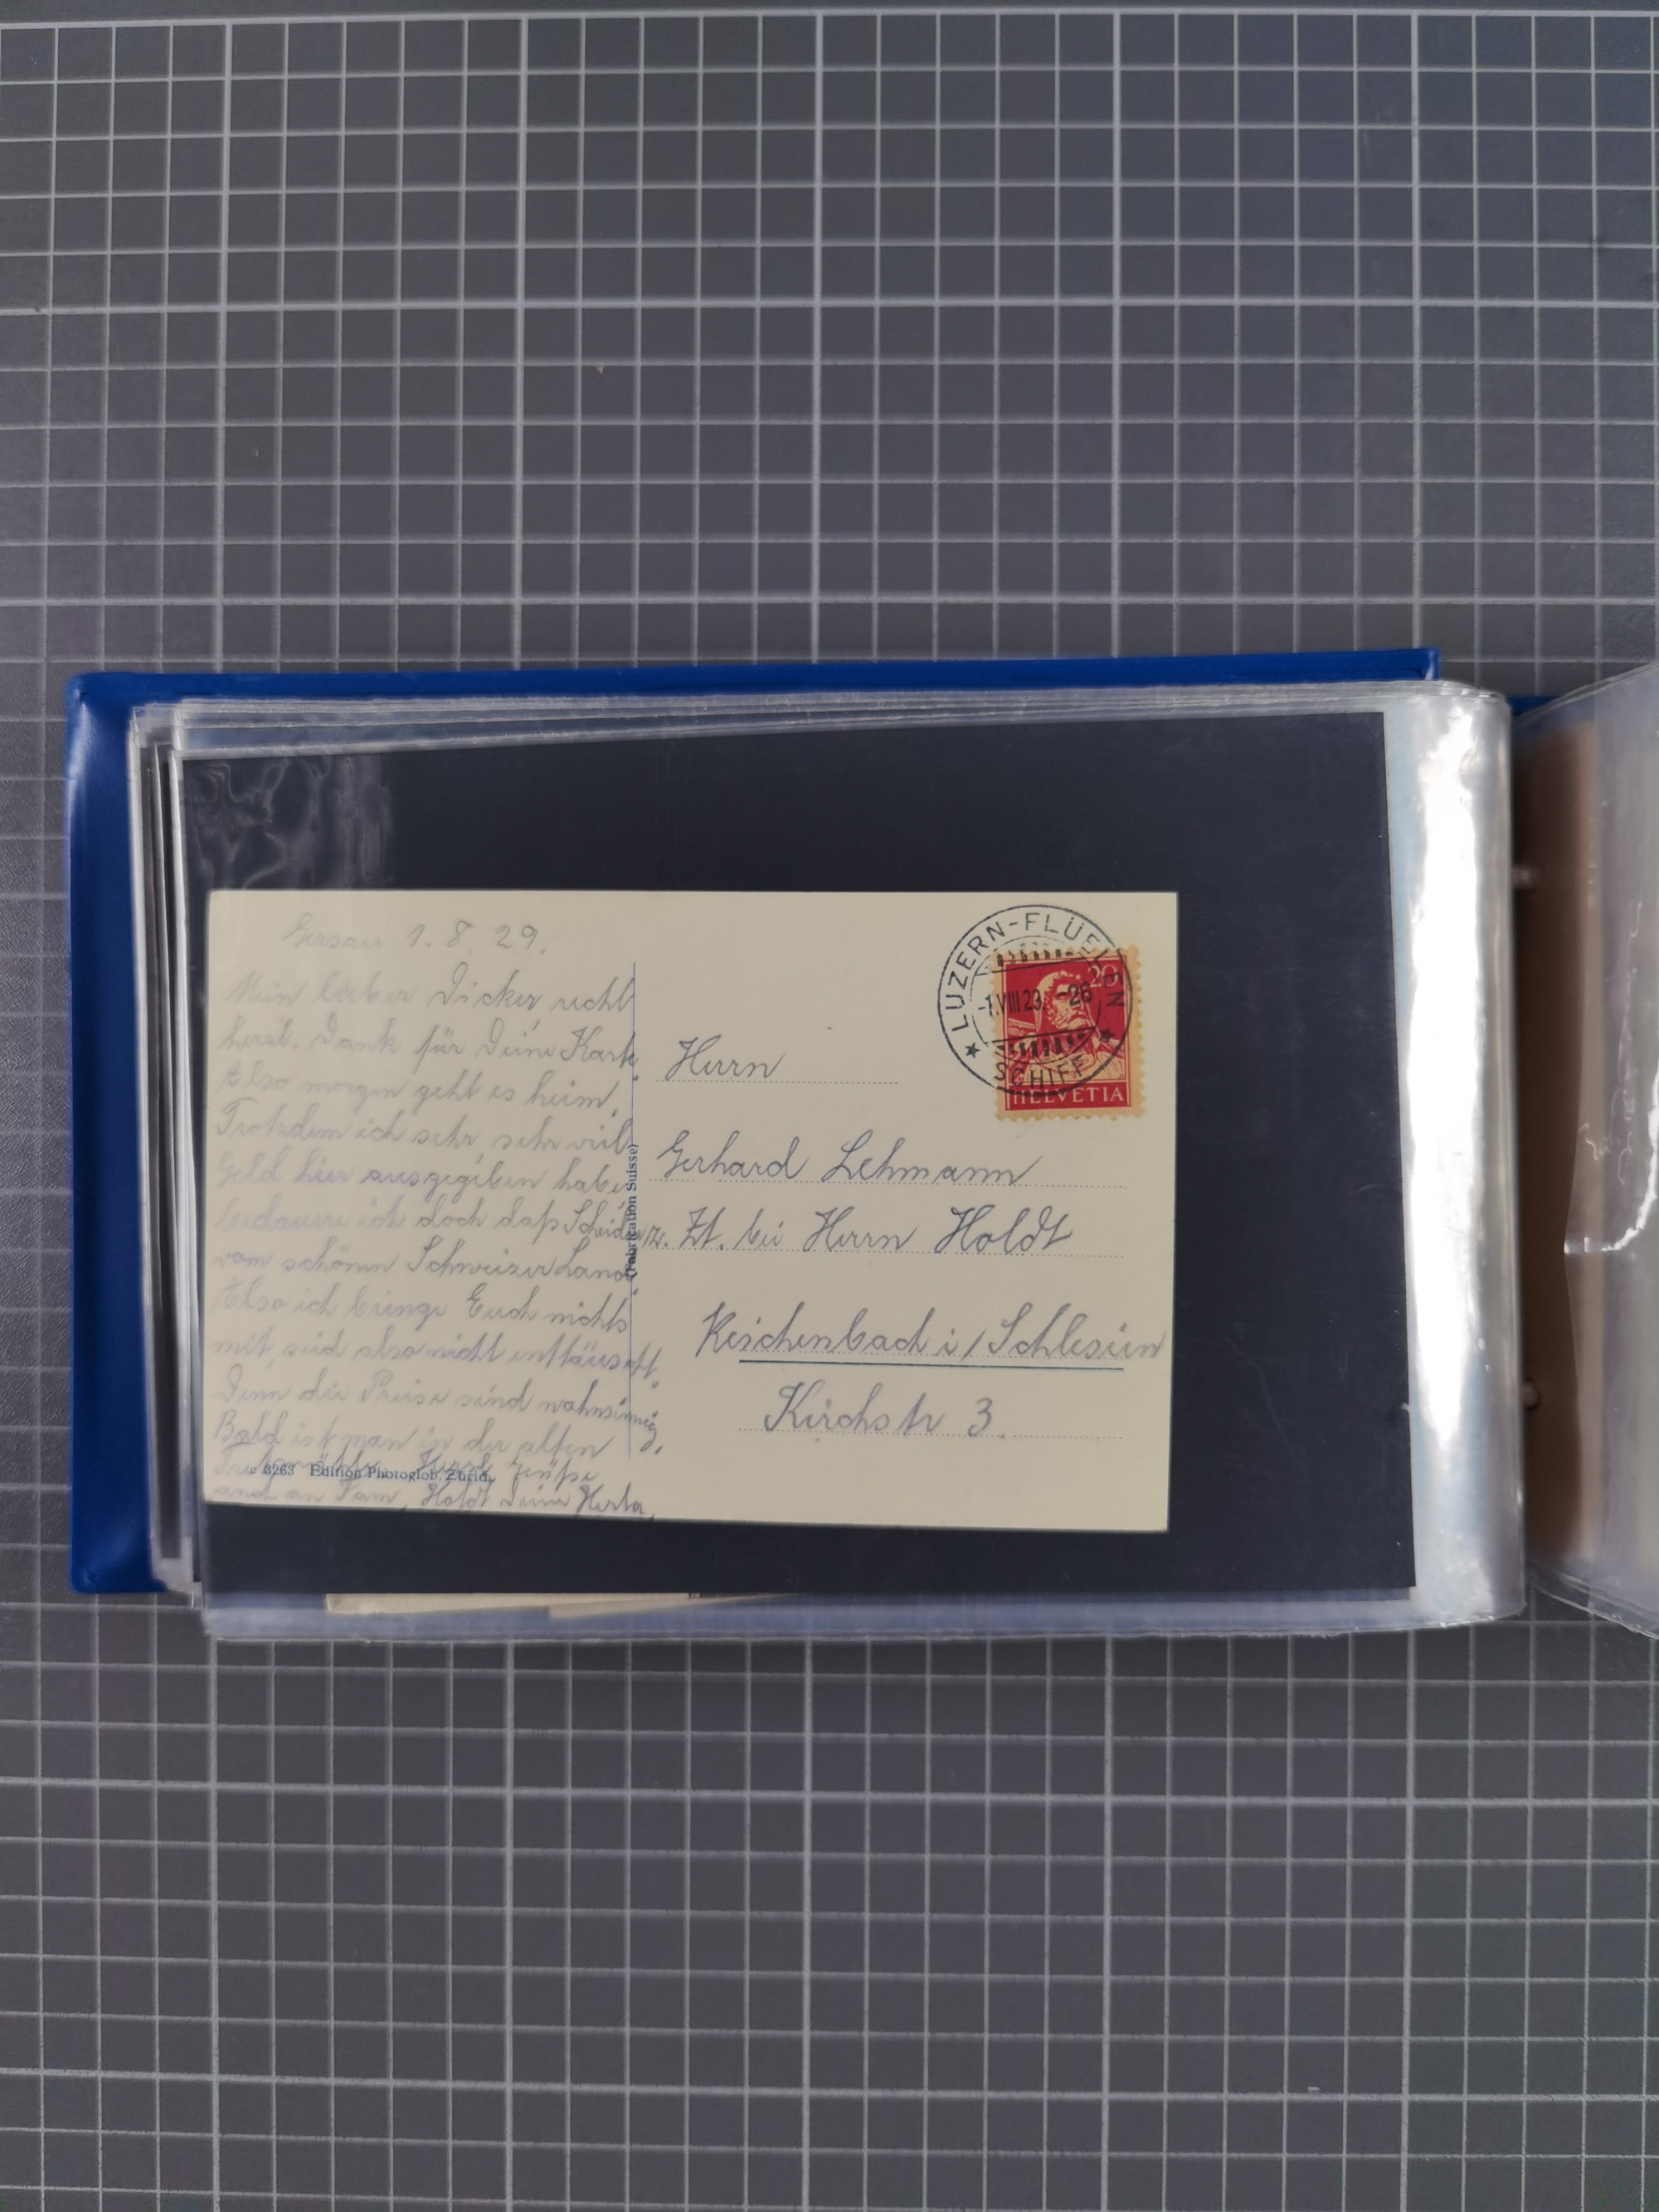 Gersau 1. 8. 29.
Mein lieber Dicker, recht
herzl. Dank für Deine Karte.
Also morgen geht es heim.
Trotzdem ich sehr, sehr viel
Geld hier ausgegeben habe,
bedauere ich doch daß Scheiden
vom schönen Schweizer Land.
Also ich bringe Euch nichts
mit, seid also nicht enttäuscht.
Denn die Preise sind wahnsinnig.
Bald ist man in der alten
Herzl. Grüße
auch an Fam. Holdt Deine Herta.
3263 Edition Photoglob, Zürich.
(Fabrication Suisse)
LUZERN-FLÜELEN
-1.VIII 29.
SCHIFF
20
HELVETIA
Herrn
Gerhard Lehmann
z. Zt. bei Herrn Holdt
Reichenbach i/Schlesien
Kirchstr 3.